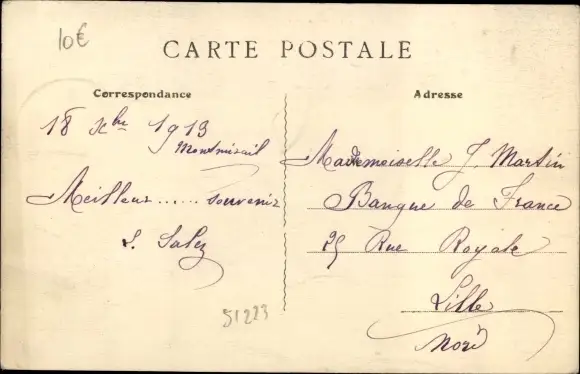 10€
CARTE POSTALE
Correspondance
18 Xbre 1913
Montmirail
Meilleur ...... souvenir
51223
Adresse
Mademoiselle J. Martin
Banque de France
25 Rue Royale
Lille
Nord